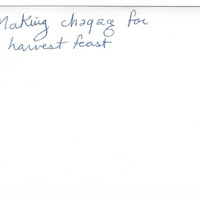 Making chaqag for
harvest feast